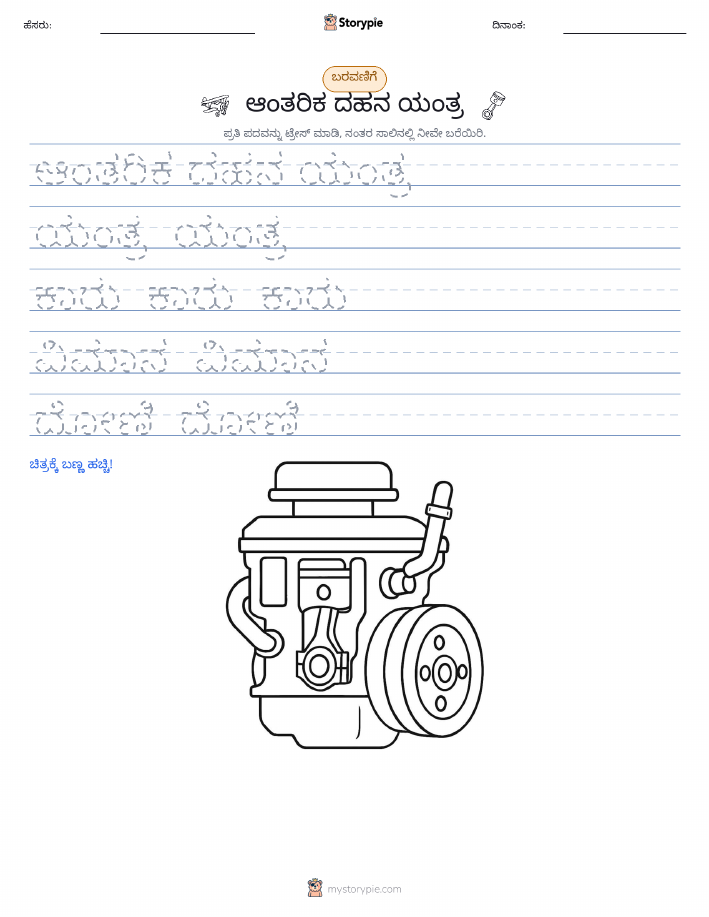 ಹೆಸರು:
Storypie
ದಿನಾಂಕ:
ಬರವಣಿಗೆ
ಆಂತರಿಕ ದಹನ ಯಂತ್ರ
ಪ್ರತಿ ಪದವನ್ನು ಟ್ರೇಸ್ ಮಾಡಿ, ನಂತರ ಸಾಲಿನಲ್ಲಿ ನೀವೇ ಬರೆಯಿರಿ.
ಆಂತರಿಕ ದಹನ ಯಂತ್ರ
ಯಂತ್ರ ಯಂತ್ರ
ಕಾರು ಕಾರು ಕಾರು
ವಿಮಾನ ವಿಮಾನ
ದೋಣಿ ದೋಣಿ
ಚಿತ್ರಕ್ಕೆ ಬಣ್ಣ ಹಚ್ಚಿ!
mystorypie.com